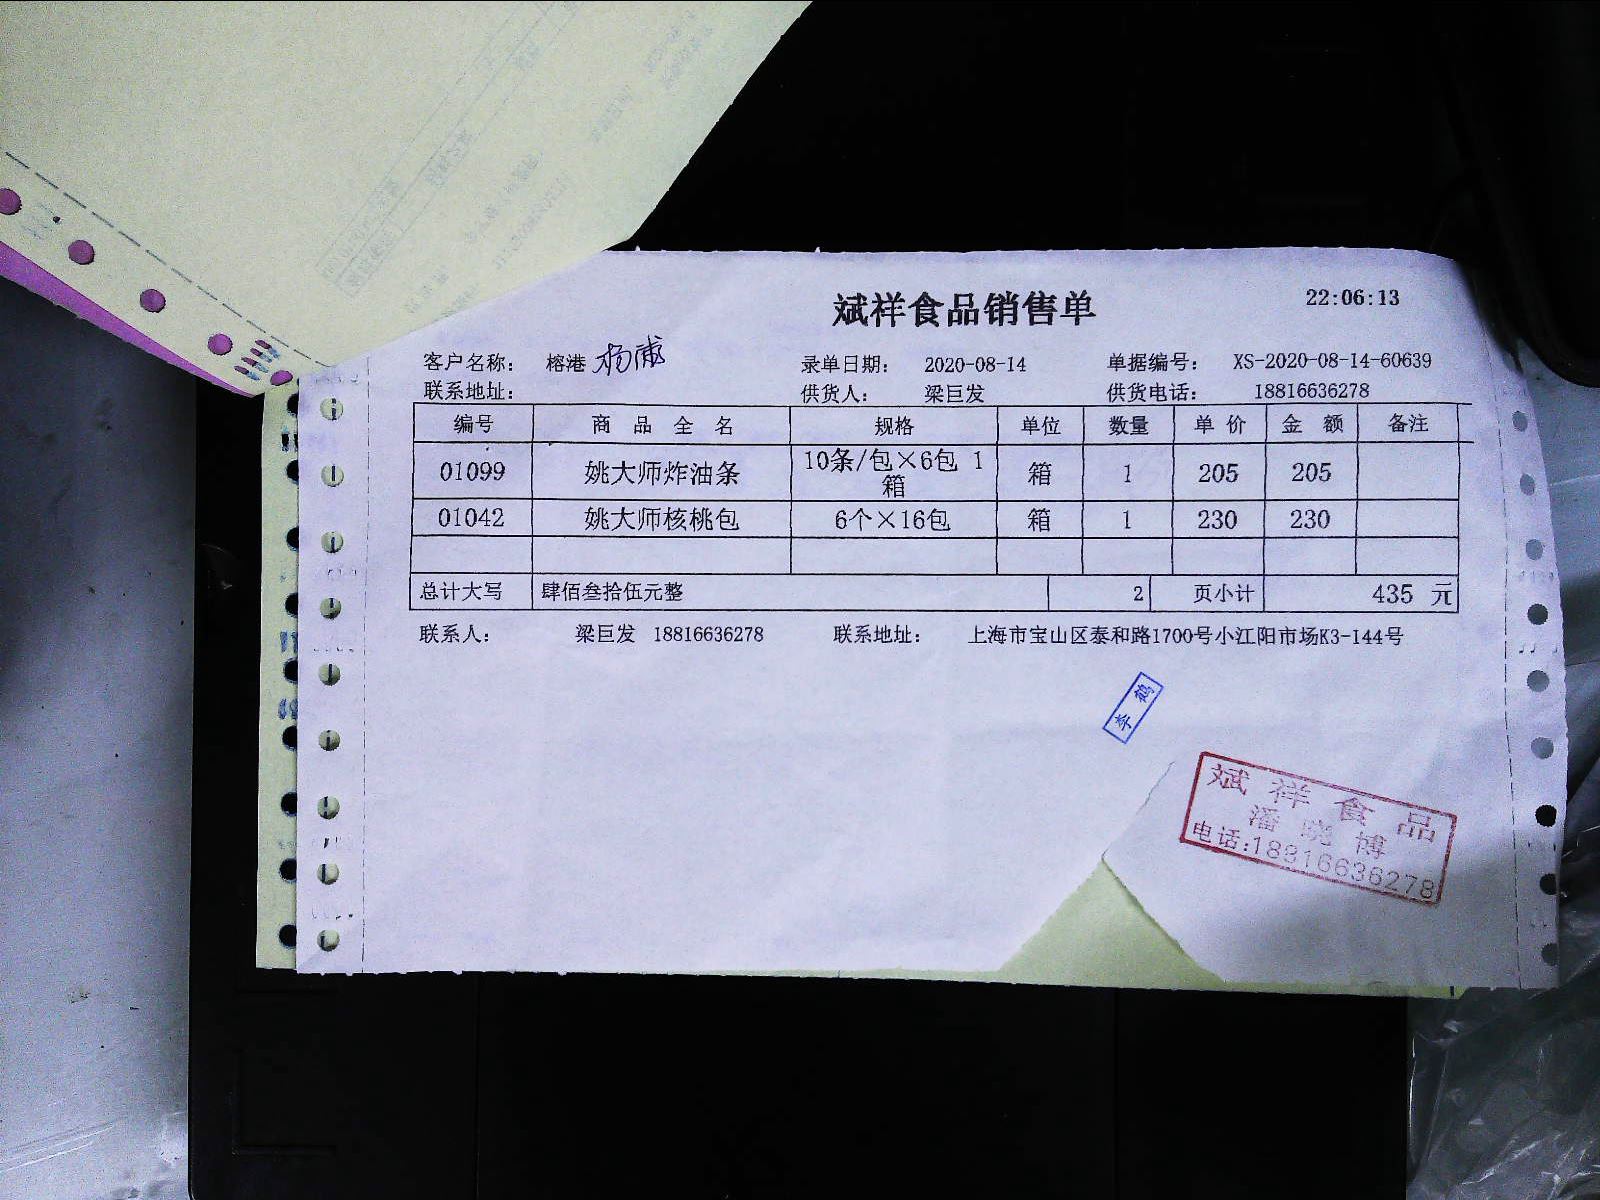 斌祥食品销售单 22:06:13
客户名称： 榕港 杨浦 录单日期： 2020-08-14 单据编号： XS-2020-08-14-60639
联系地址： 供货人： 梁巨发 供货电话： 18816636278
编号 商品全名 规格 单位 数量 单价 金额 备注
01099 姚大师炸油条 10条/包×6包 1箱 箱 1 205 205
01042 姚大师核桃包 6个×16包 箱 1 230 230
总计大写 肆佰叁拾伍元整 2 页小计 435 元
联系人： 梁巨发 18816636278 联系地址： 上海市宝山区泰和路1700号小江阳市场K3-144号
李鹤
斌祥食品
潘晓博
电话:18816636278